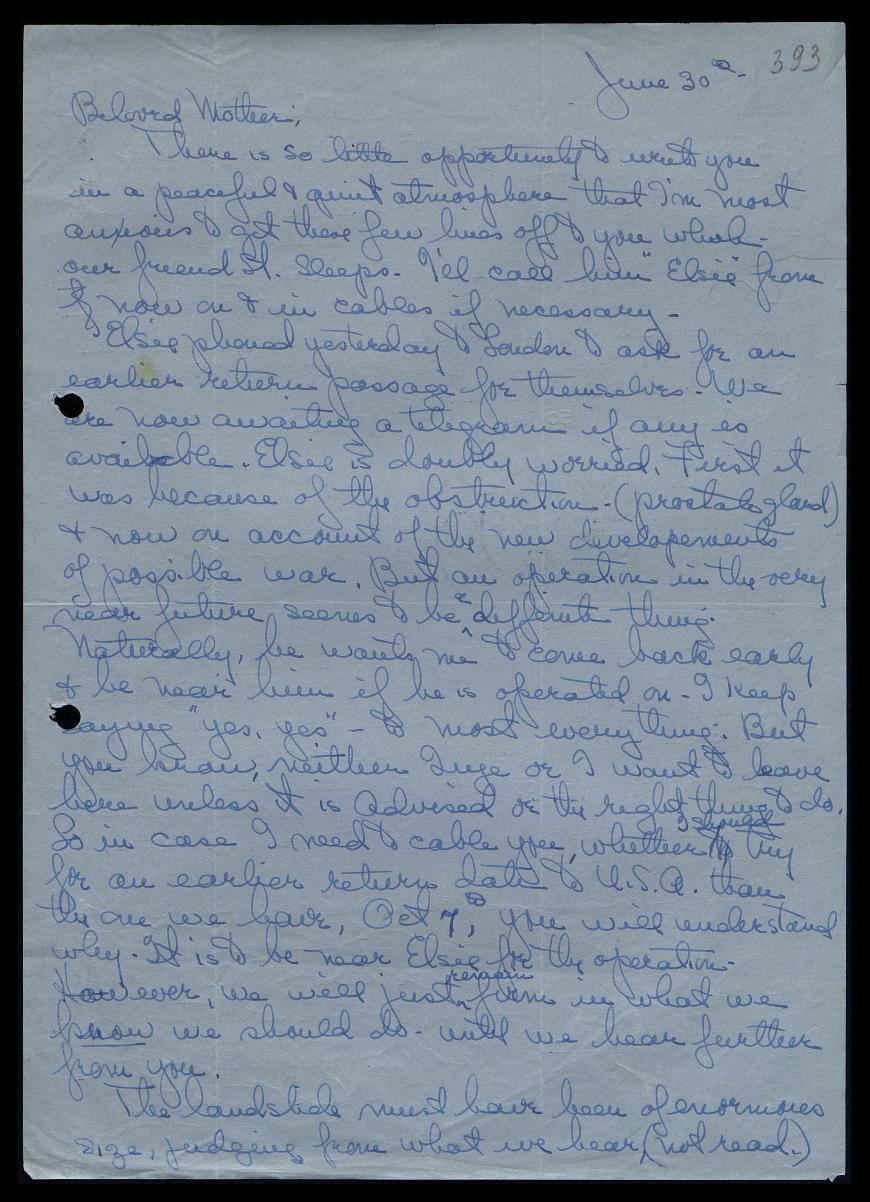 393
June 30th -
Beloved Mother;
There is so little opportunity to write you
in a peaceful & quiet atmosphere that I'm most
anxious to get these few lines off to you while
our friend St. sleeps - I'll call him "Elsie" from
now on & in cables if necessary -
Elsie phoned yesterday to London to ask for an
earlier return passage for themselves - We
are now awaiting a telegram if any is
available. Elsie is doubly worried. First it
was because of the obstruction - (prostate gland)
& now on account of the new developements
of possible war. But an operation in the very
near future seems to be a definite thing.
Naturally, he wants me to come back early
& be near him if he is operated on - I keep
saying "yes, yes" - to most everything. But
you know, neither Inge or I want to leave
here unless it is advised or the right thing to do.
So in case I need to cable you, whether I should try
for an earlier return date to U.S.A. than
the one we have, Oct 7th, you will understand
why. It is to be near Elsie for the operation -
However, we will just remain firm in what we
know we should do - until we hear further
from you.
The landslide must have been of enormous
size, judging from what we hear, (not read.)